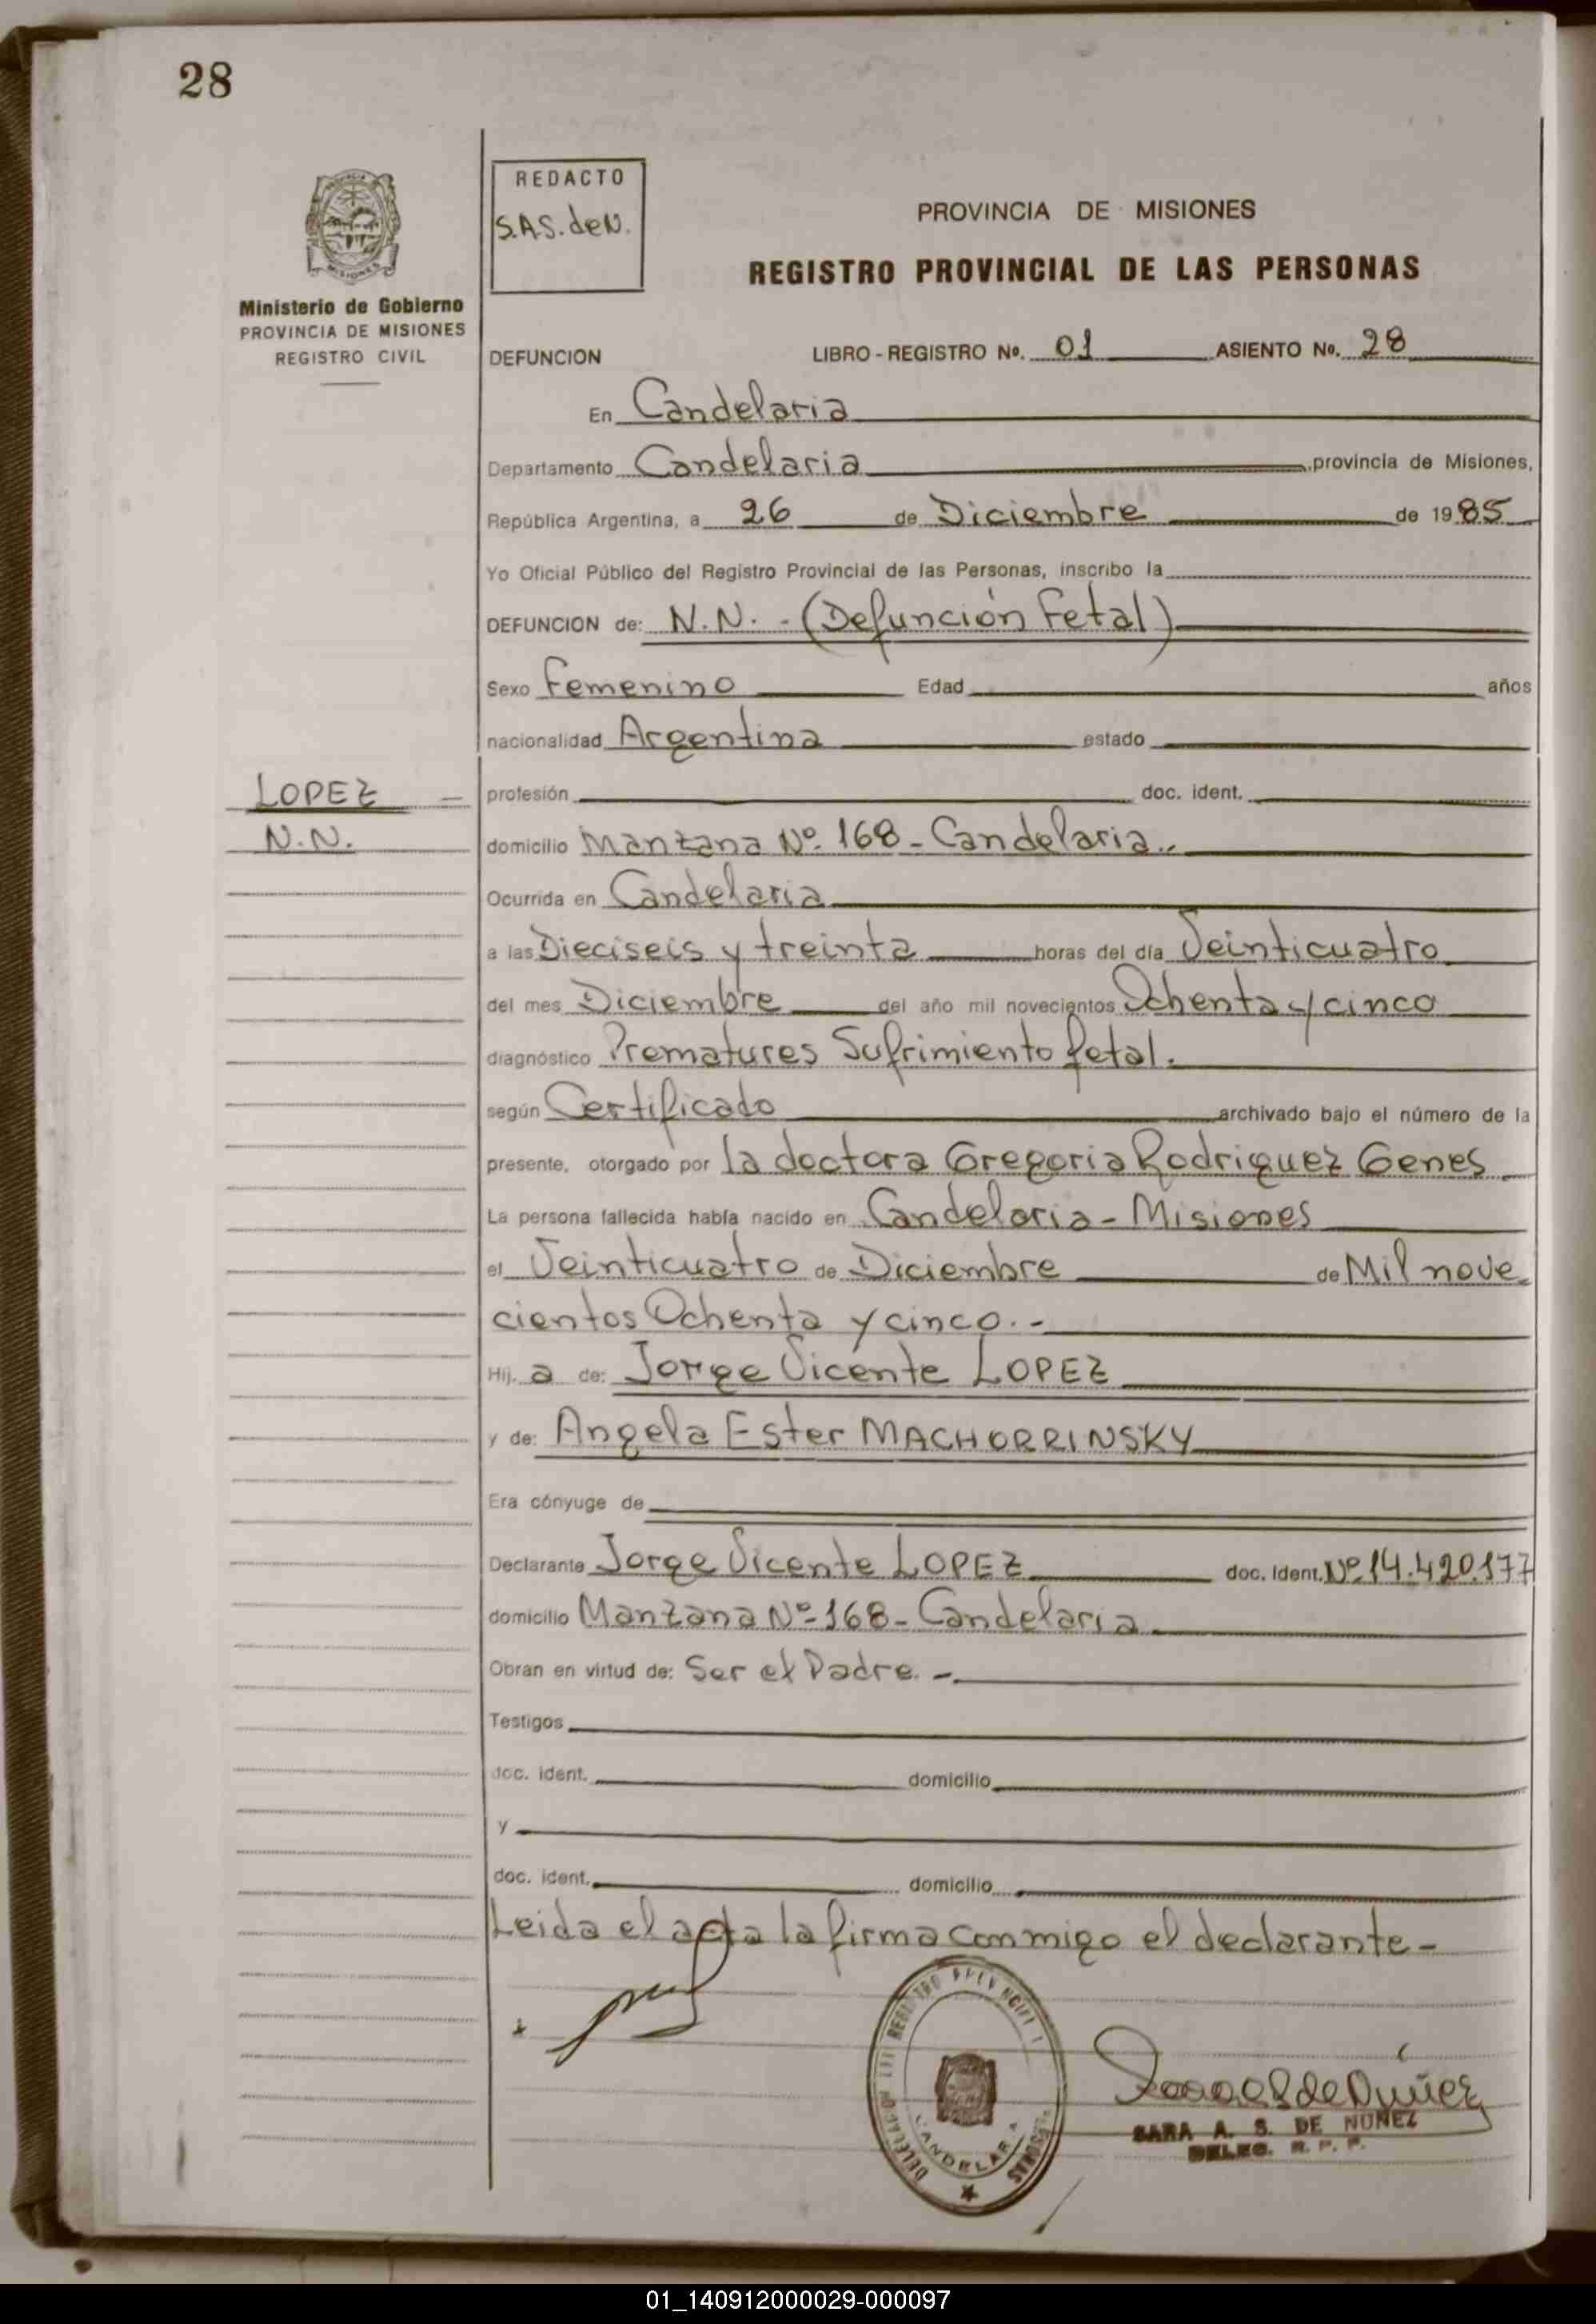 28
PROVINCIA
MISIONES
Ministerio de Gobierno
PROVINCIA DE MISIONES
REGISTRO CIVIL
REDACTO
S.A.S. de N.
PROVINCIA DE MISIONES
REGISTRO PROVINCIAL DE LAS PERSONAS
DEFUNCION LIBRO - REGISTRO No. 01 ASIENTO No. 28
En Candelaria
Departamento Candelaria provincia de Misiones,
República Argentina, a 26 de Diciembre de 1985
Yo Oficial Público del Registro Provincial de las Personas, inscribo la
DEFUNCION de: N.N. - (Defunción Fetal)
Sexo Femenino Edad años
nacionalidad Argentina estado
LOPEZ
N.N.
profesión doc. ident.
domicilio Manzana Nº 168 - Candelaria..
Ocurrida en Candelaria
a las Dieciseis y treinta horas del día Veinticuatro
del mes Diciembre del año mil novecientos Ochenta y cinco
diagnóstico Prematures Sufrimiento fetal.
según Certificado archivado bajo el número de la
presente, otorgado por la doctora Gregoria Rodriguez Genes
La persona fallecida había nacido en Candelaria - Misiones
el Veinticuatro de Diciembre de Mil nove
cientos Ochenta y cinco. -
Hij. a de: Jorge Vicente LOPEZ
y de: Angela Ester MACHORRINSKY
Era cónyuge de
Declarante Jorge Vicente LOPEZ doc. ident. Nº 14.420.177
domicilio Manzana Nº 168 - Candelaria
Obran en virtud de: Ser el Padre. -
Testigos
doc. ident. domicilio
y
doc. ident. domicilio
Leida el acta la firma conmigo el declarante -
REGISTRO PROVINCIAL
CANDELARIA
SARA A. S. DE NUÑEZ
DELEG. R. P. P.
01_140912000029-000097